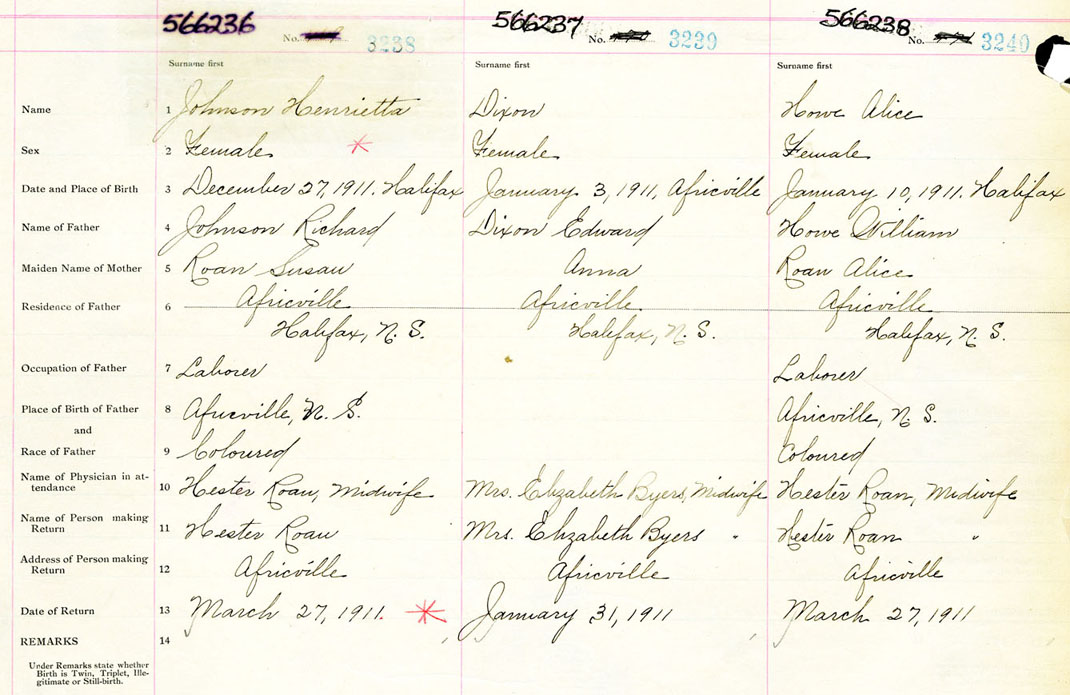 566236 566237 566238
No. 3238 No. 3239 No. 3240
Surname first Surname first Surname first
Name 1 Johnson Henrietta Dixon Howe Alice
Sex 2 Female * Female Female
Date and Place of Birth 3 December 27, 1911. Halifax January 3, 1911, Africville January 10, 1911. Halifax
Name of Father 4 Johnson Richard Dixon Edward Howe William
Maiden Name of Mother 5 Roan Susan Anna Roan Alice
Residence of Father 6 Africville Africville Africville
Halifax, N. S. Halifax, N. S. Halifax, N. S.
Occupation of Father 7 Laborer Laborer
Place of Birth of Father 8 Africville, N. S. Africville, N. S.
and
Race of Father 9 Coloured Coloured
Name of Physician in at-
tendance 10 Hester Roan, Midwife Mrs. Elizabeth Byers, Midwife Hester Roan, Midwife
Name of Person making
Return 11 Hester Roan Mrs. Elizabeth Byers " Hester Roan "
Address of Person making
Return 12 Africville Africville Africville
Date of Return 13 March 27, 1911. * January 31, 1911 March 27, 1911
REMARKS 14
Under Remarks state whether
Birth is Twin, Triplet, Ille-
gitimate or Still-birth.